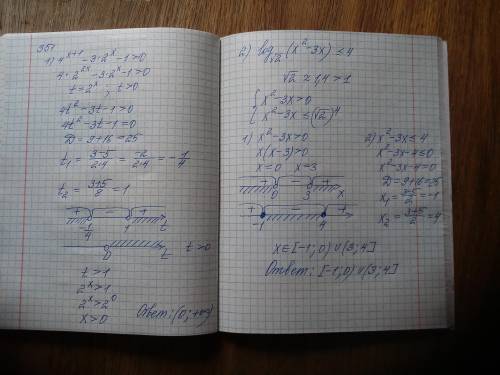 351
1) 4^{x+1} - 3·2^x - 1 > 0
4·2^{2x} - 3·2^x - 1 > 0
t = 2^x ; t > 0
4t² - 3t - 1 > 0
4t² - 3t - 1 = 0
D = 9 + 16 = 25
t₁ = (3-5)/(2·4) = -2/(2·4) = -1/4
t₂ = (3+5)/8 = 1
+ - +
-1/4 1 t
0 t > 0
t > 1
2^x > 1
2^x > 2^0
x > 0
Ответ: (0; +∞)
2) log_{√2}(x² - 3x) ≤ 4
√2 ≈ 1,4 > 1
{ x² - 3x > 0
x² - 3x ≤ (√2)^4
1) x² - 3x > 0
x(x-3) > 0
x = 0 x = 3
+ - +
0 3 x
+ - +
-1 4
2) x² - 3x ≤ 4
x² - 3x - 4 ≤ 0
x² - 3x - 4 = 0
D = 9 + 16 = 25
x₁ = (3-5)/2 = -1
x₂ = (3+5)/2 = 4
x ∈ [-1; 0) ∪ (3; 4]
Ответ: [-1; 0) ∪ (3; 4]